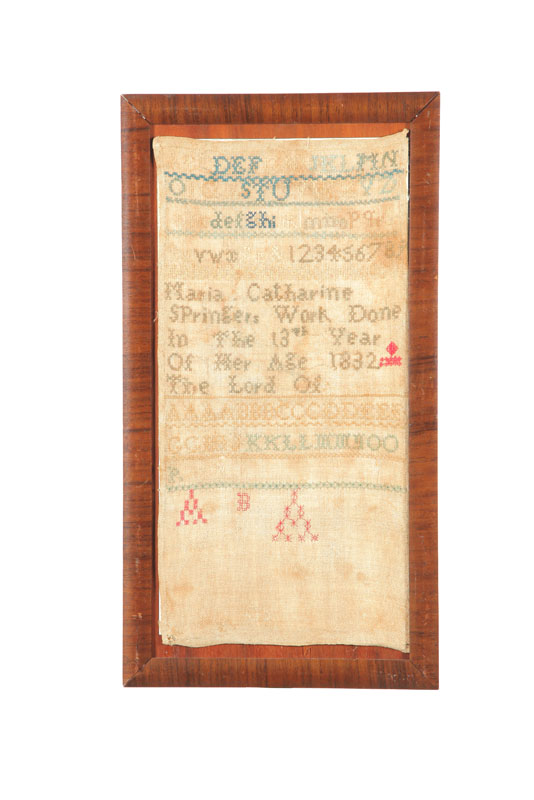 DEF KLMN
O STU
defghi mnopq
vwx 12345678
Maria Catharine
SPringers Work Done
In The 13th Year
Of Her Age 1832
The Lord Of
AAAABBBCCCCDDEEE
KKLLMMNNOO
P
B